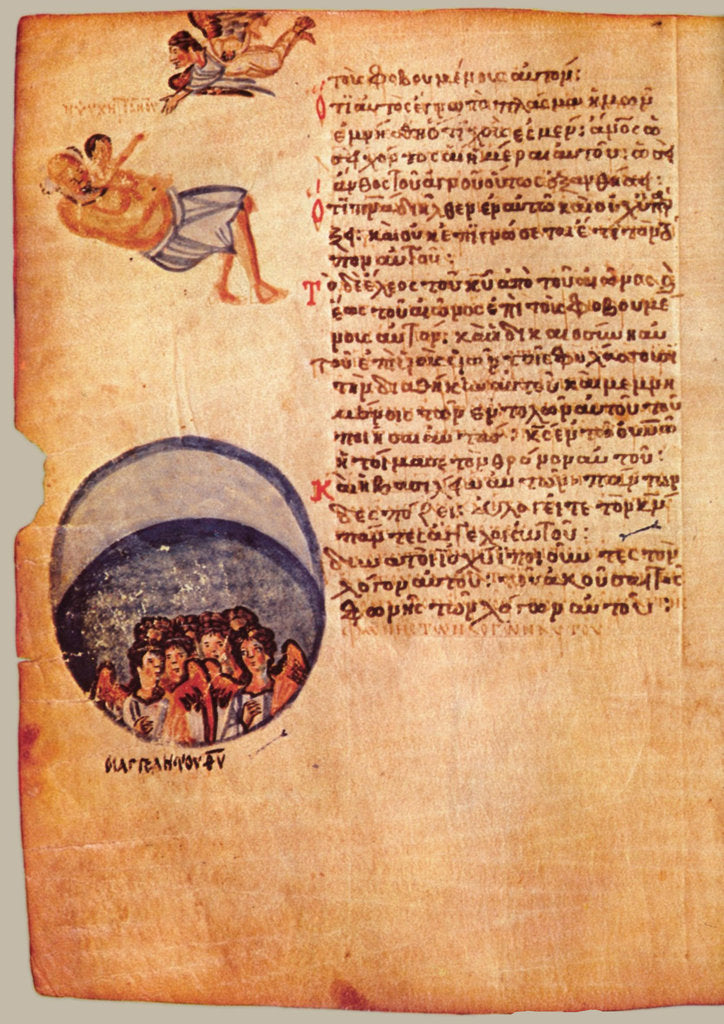 Η ΨΥΧΗ
τοῖς φοβουμένοις αὐτόν:
Ὅτι αὐτὸς ἔγνω τὸ πλάσμα ἡμῶν
ἐμνήσθη ὅτι χοῦς ἐσμέν: ἄνος ὡ
σεὶ χόρτος αἱ ἡμέραι αὐτοῦ: ὡσεὶ
ἄνθος τοῦ ἀγροῦ οὕτως ἐξανθήσει:
Ὅτι πνα διῆλθεν ἐν αὐτῶ καὶ οὐχ ὑπάρ
ξει: καὶ οὐκ ἐπιγνώσεται ἔτι τὸν
τόπον αὐτοῦ:
Τὸ δὲ ἔλεος τοῦ κυ ἀπὸ τοῦ αἰῶνος
ἕως τοῦ αἰῶνος ἐπὶ τοὺς φοβουμέ
νους αὐτόν: καὶ ἡ δικαιοσύνη αὐ
τοῦ ἐπὶ υἱοῖς υἱῶν τοῖς φυλάσσουσι
τὴν διαθήκην αὐτοῦ καὶ μεμνη
μένοις τῶν ἐντολῶν αὐτοῦ τοῦ
ποιῆσαι αὐτάς: κς ἐν τῶ οὐνω
ἡτοίμασε τὸν θρόνον αὐτοῦ:
Καὶ ἡ βασιλεία αὐτοῦ πάντων
δεσπόζει: εὐλογεῖτε τὸν κν
πάντες οἱ ἄγγελοι αὐτοῦ:
δυνατοὶ ἰσχύϊ ποιοῦντες τὸν
λόγον αὐτοῦ: τοῦ ἀκοῦσαι τῆς
φωνῆς τῶν λόγων αὐτοῦ:
ΦΩΝΗΣ ΤΩΝ ΛΟΓΩΝ ΑΥΤΟΥ
ΟΙ ΑΓΓΕΛΗ ΤΟΥ ΘΥ